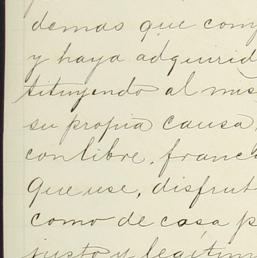 demas que com
y haya adquirid
tituyendo al mis
su propia causa,
con libre, franc
que use, disfrut
como de cosa p
justo y legitim